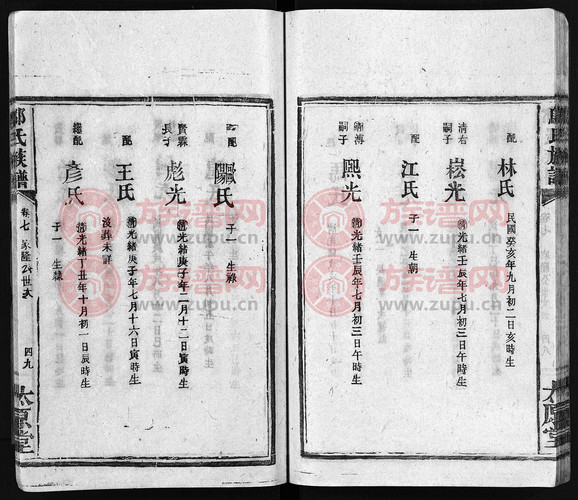 配 林氏
民國癸亥年九月初二日亥時生
清右嗣子 崧光
清光緒壬辰年七月初三日午時生
配 江氏
子一 生朝
嗣子 熙光
清光緒壬辰年七月初三日午時生
配 歐氏
子一 生綠
賢霖長子 彪光
清光緒庚子年二月十二日寅時生
配 王氏
清光緒庚子年七月十六日寅時生
沒葬未詳
繼配 彥氏
清光緒丁丑年十月初一日辰時生
子一 生祿
氏族譜
卷七
公世次
四九
太原堂
族谱网
www.zupu.cn